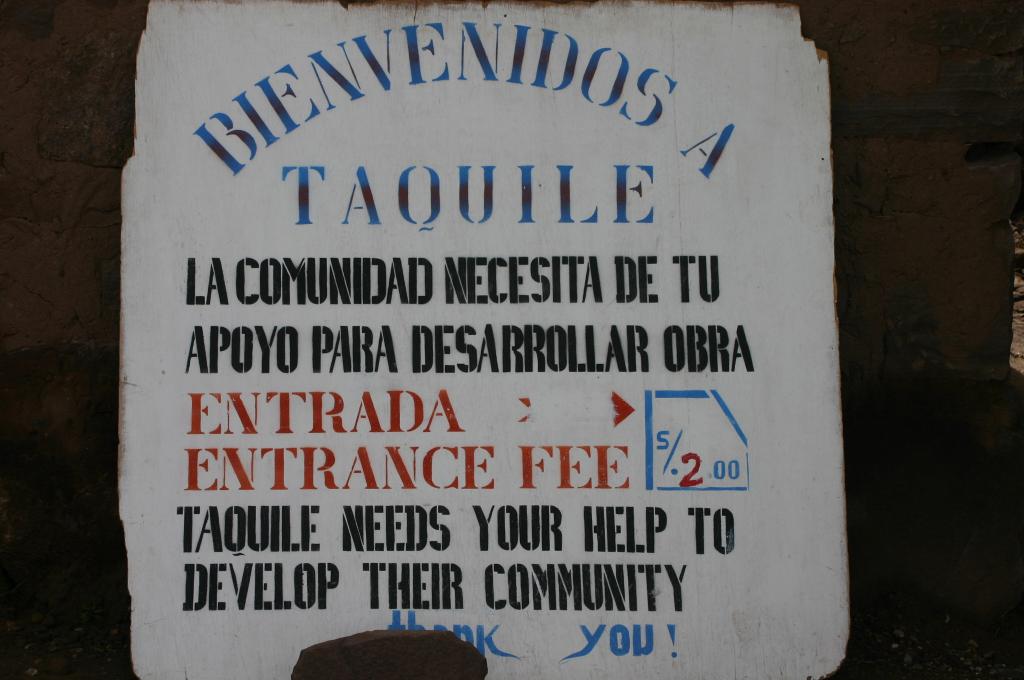 BIENVENIDOS A
TAQUILE
LA COMUNIDAD NECESITA DE TU
APOYO PARA DESARROLLAR OBRA
ENTRADA
ENTRANCE FEE S/. 2.00
TAQUILE NEEDS YOUR HELP TO
DEVELOP THEIR COMMUNITY
thank you!